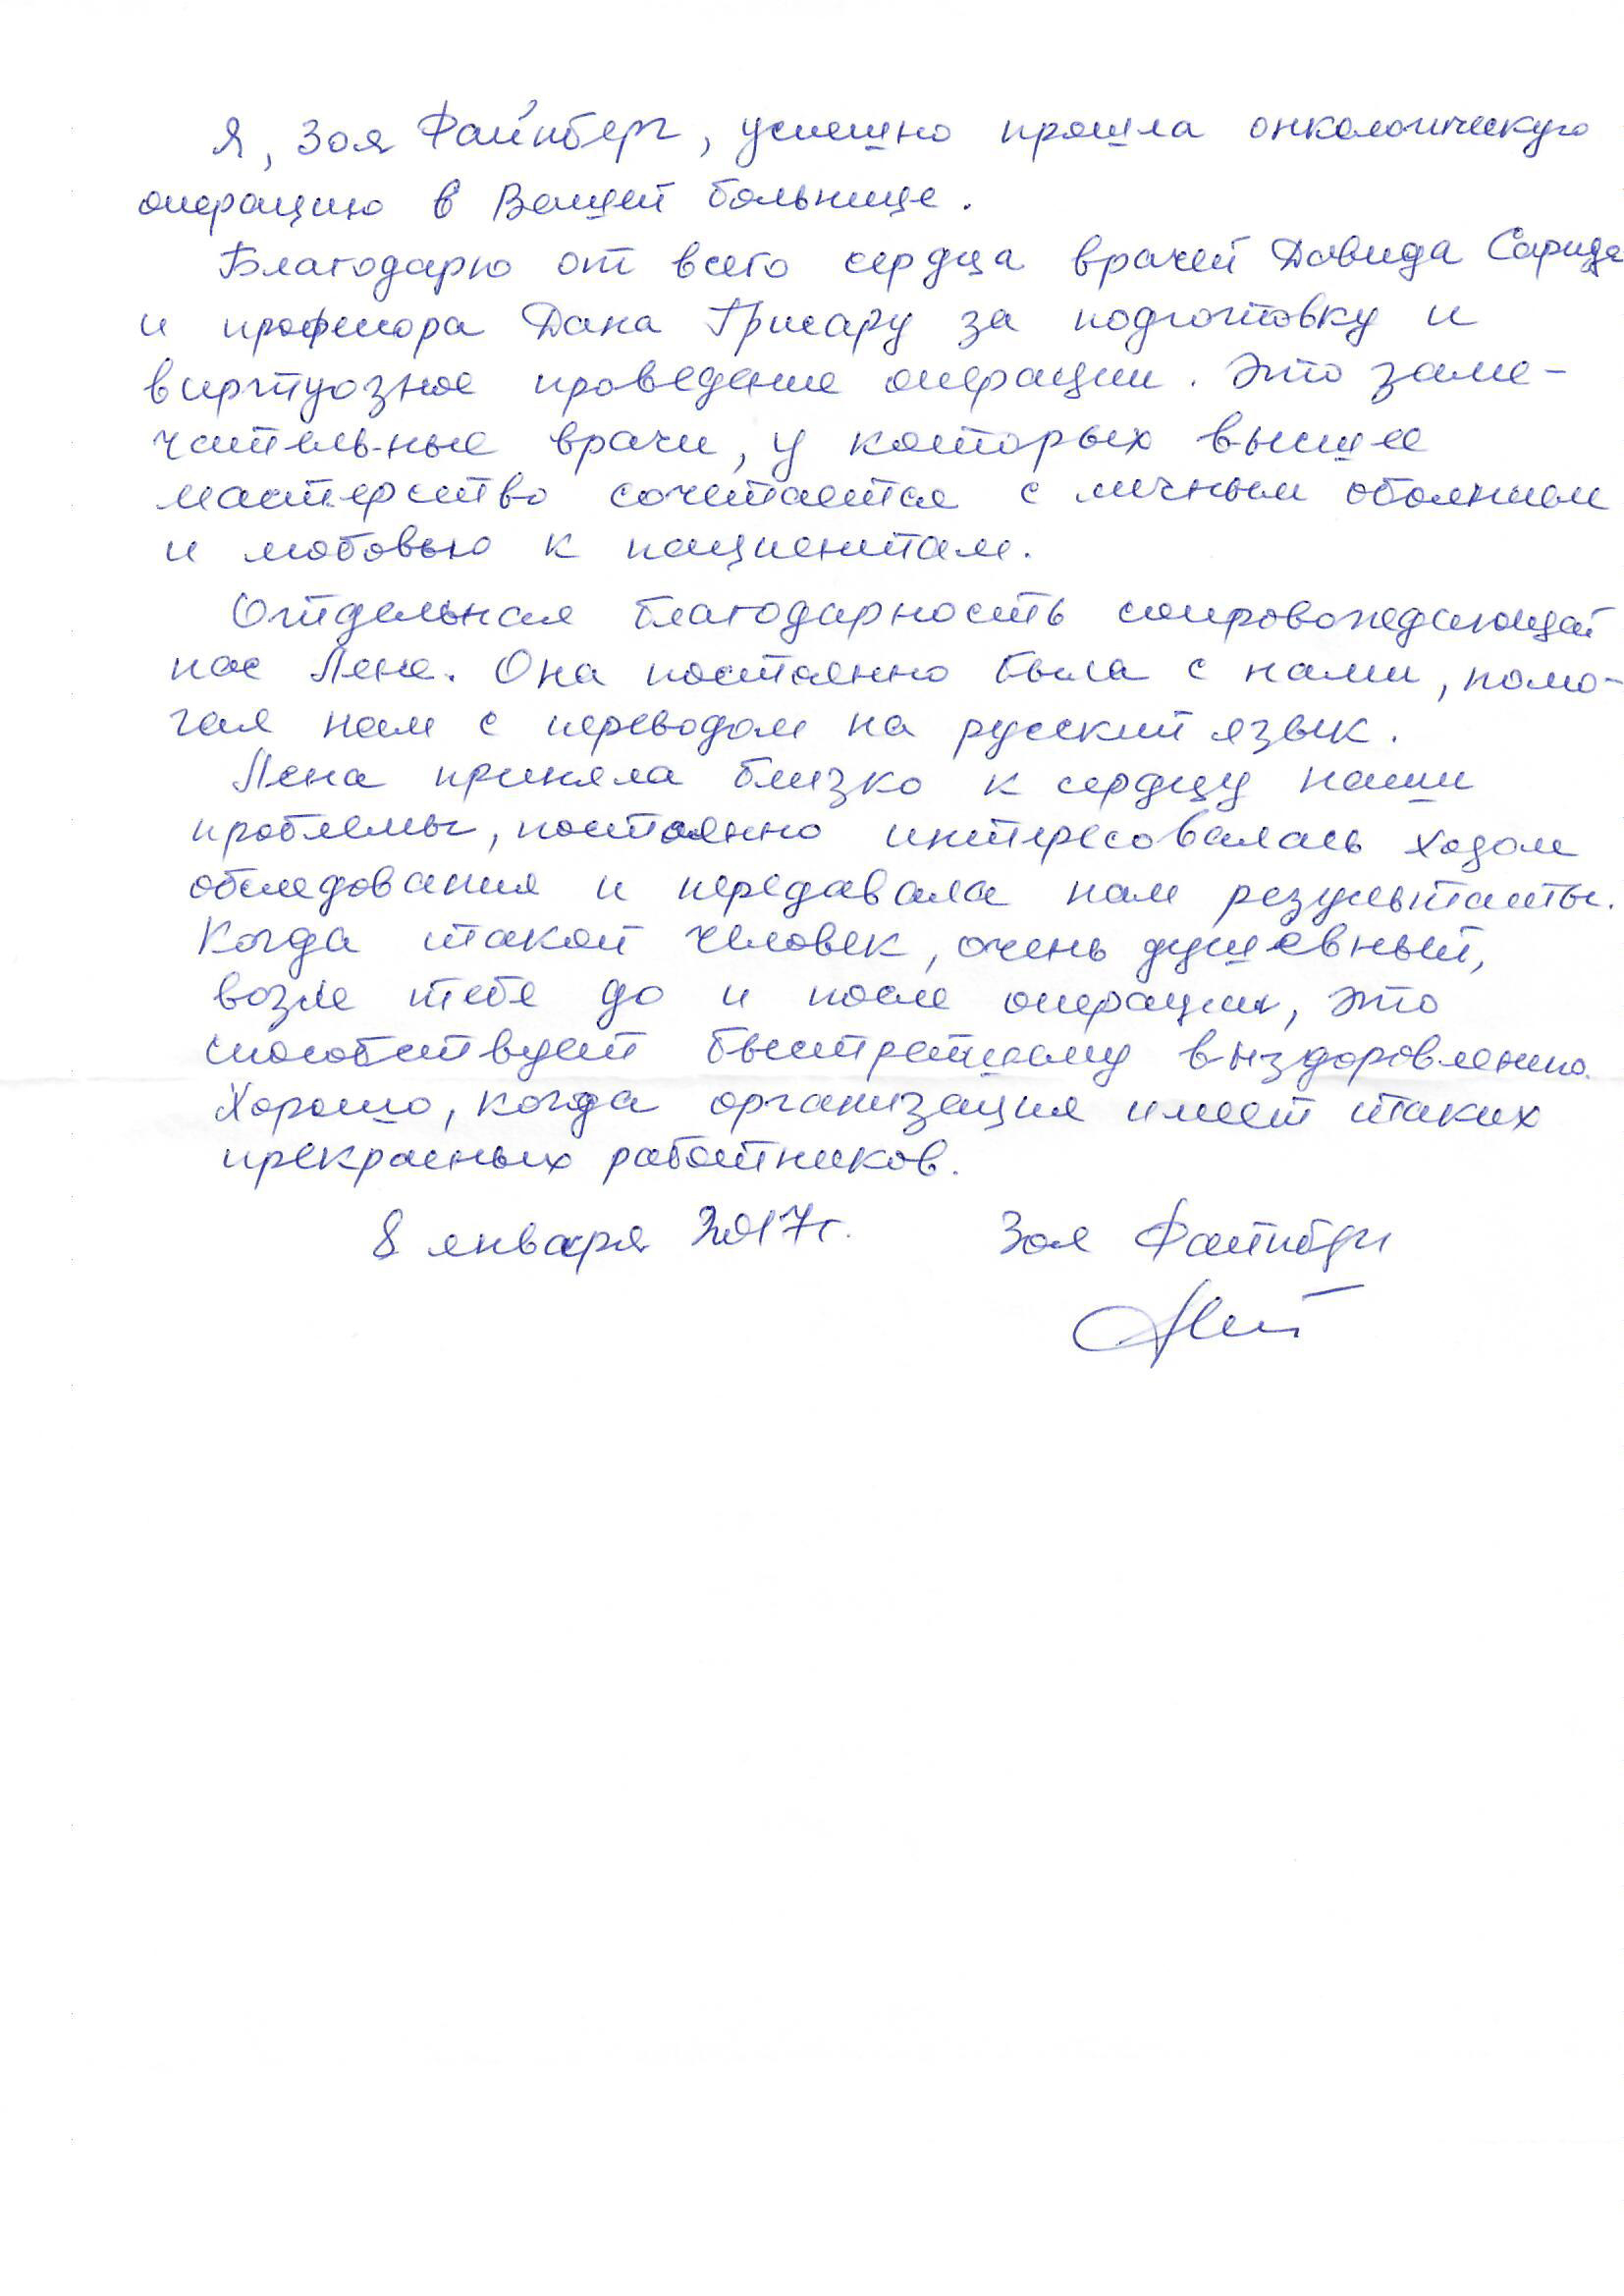 Я, Зоя Файнберг, успешно прошла онкологическую
операцию в Вашей больнице.
Благодарю от всего сердца врачей Давида
и профессора Дана Грисару за подготовку и
виртуозное проведение операции. Это заме-
чательные врачи, у которых высшее
мастерство сочетается с личным обаянием
и любовью к пациентам.
Отдельная благодарность сопровождающей
нас Лене. Она постоянно была с нами, помо-
гая нам с переводом на русский язык.
Лена приняла близко к сердцу наши
проблемы, постоянно интересовалась ходом
обследования и передавала нам результаты.
Когда такой человек, очень душевный,
возле тебя до и после операции, это
способствует быстрейшему выздоровлению.
Хорошо, когда организация имеет таких
прекрасных работников.
8 января 2017г. Зоя Файнберг